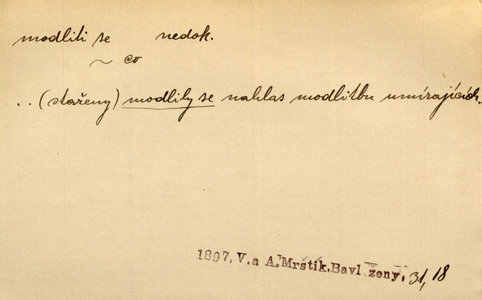 modliti se nedok.
~ co
.. (stařeny) modlily se nahlas modlitbu umírajících.
1897, V. a A. Mrštík. Bavl. ženy. 31, 18